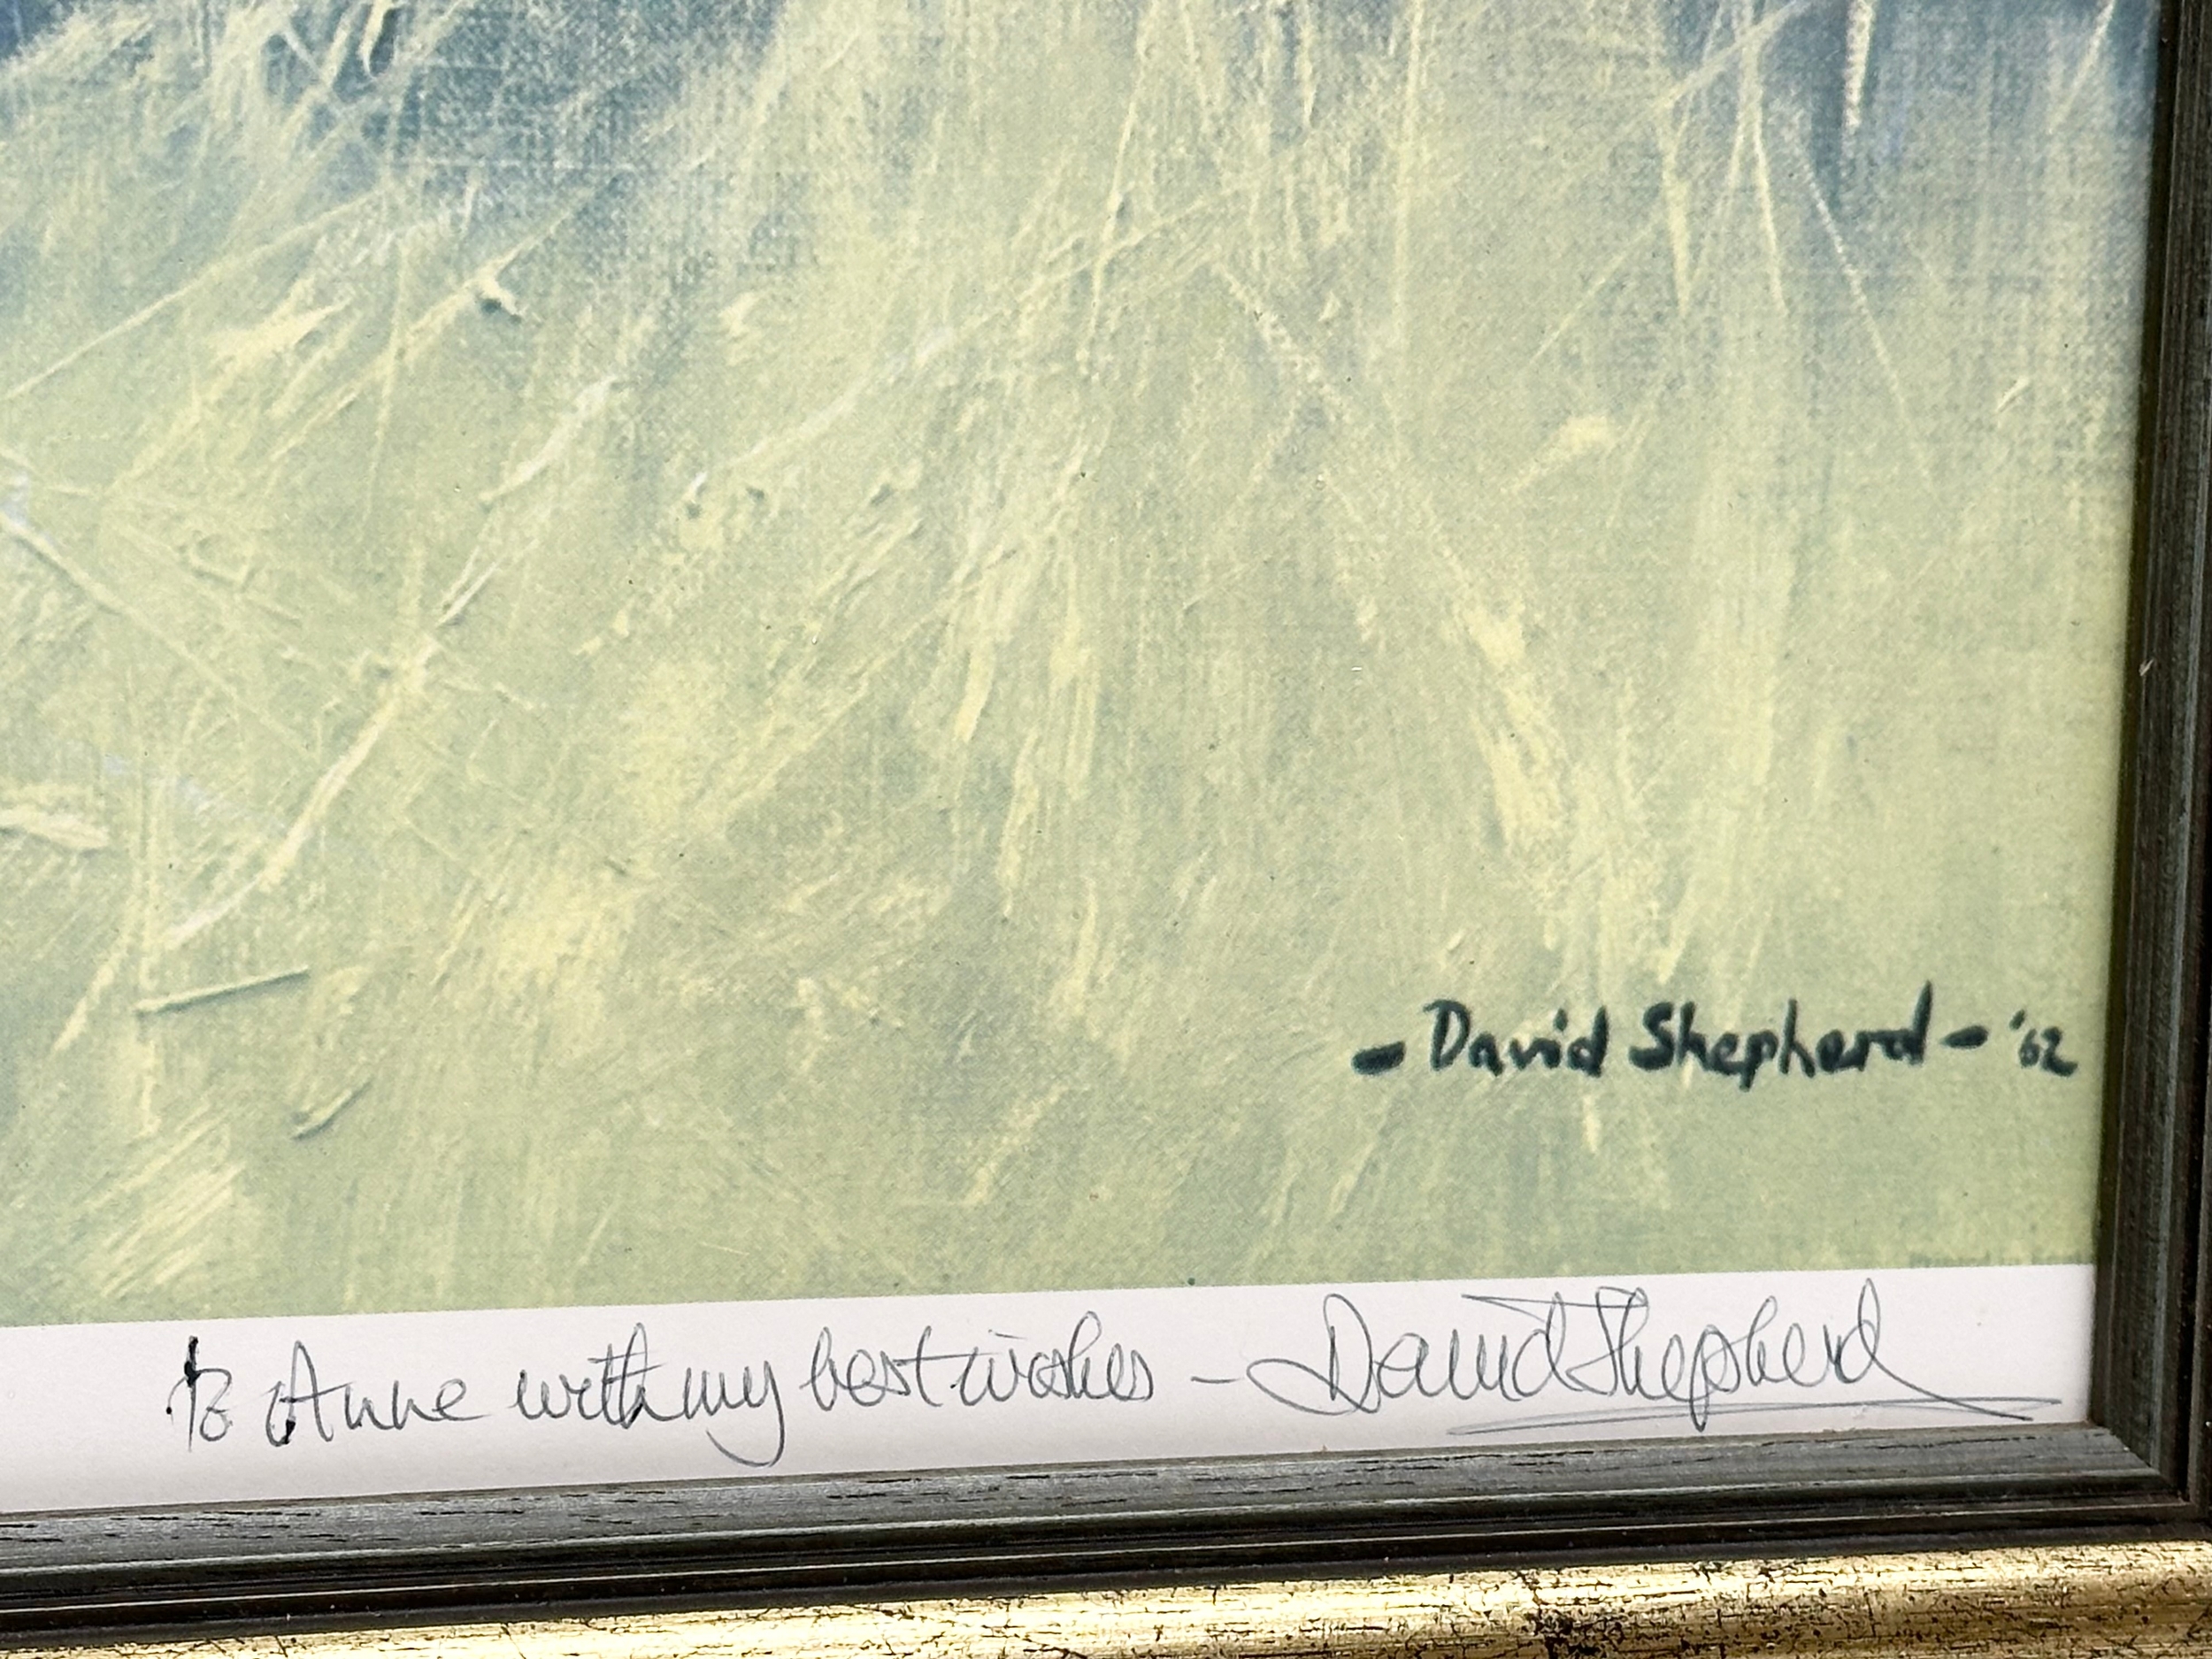 - David Shepherd - '62
To Anne with my best wishes - David Shepherd